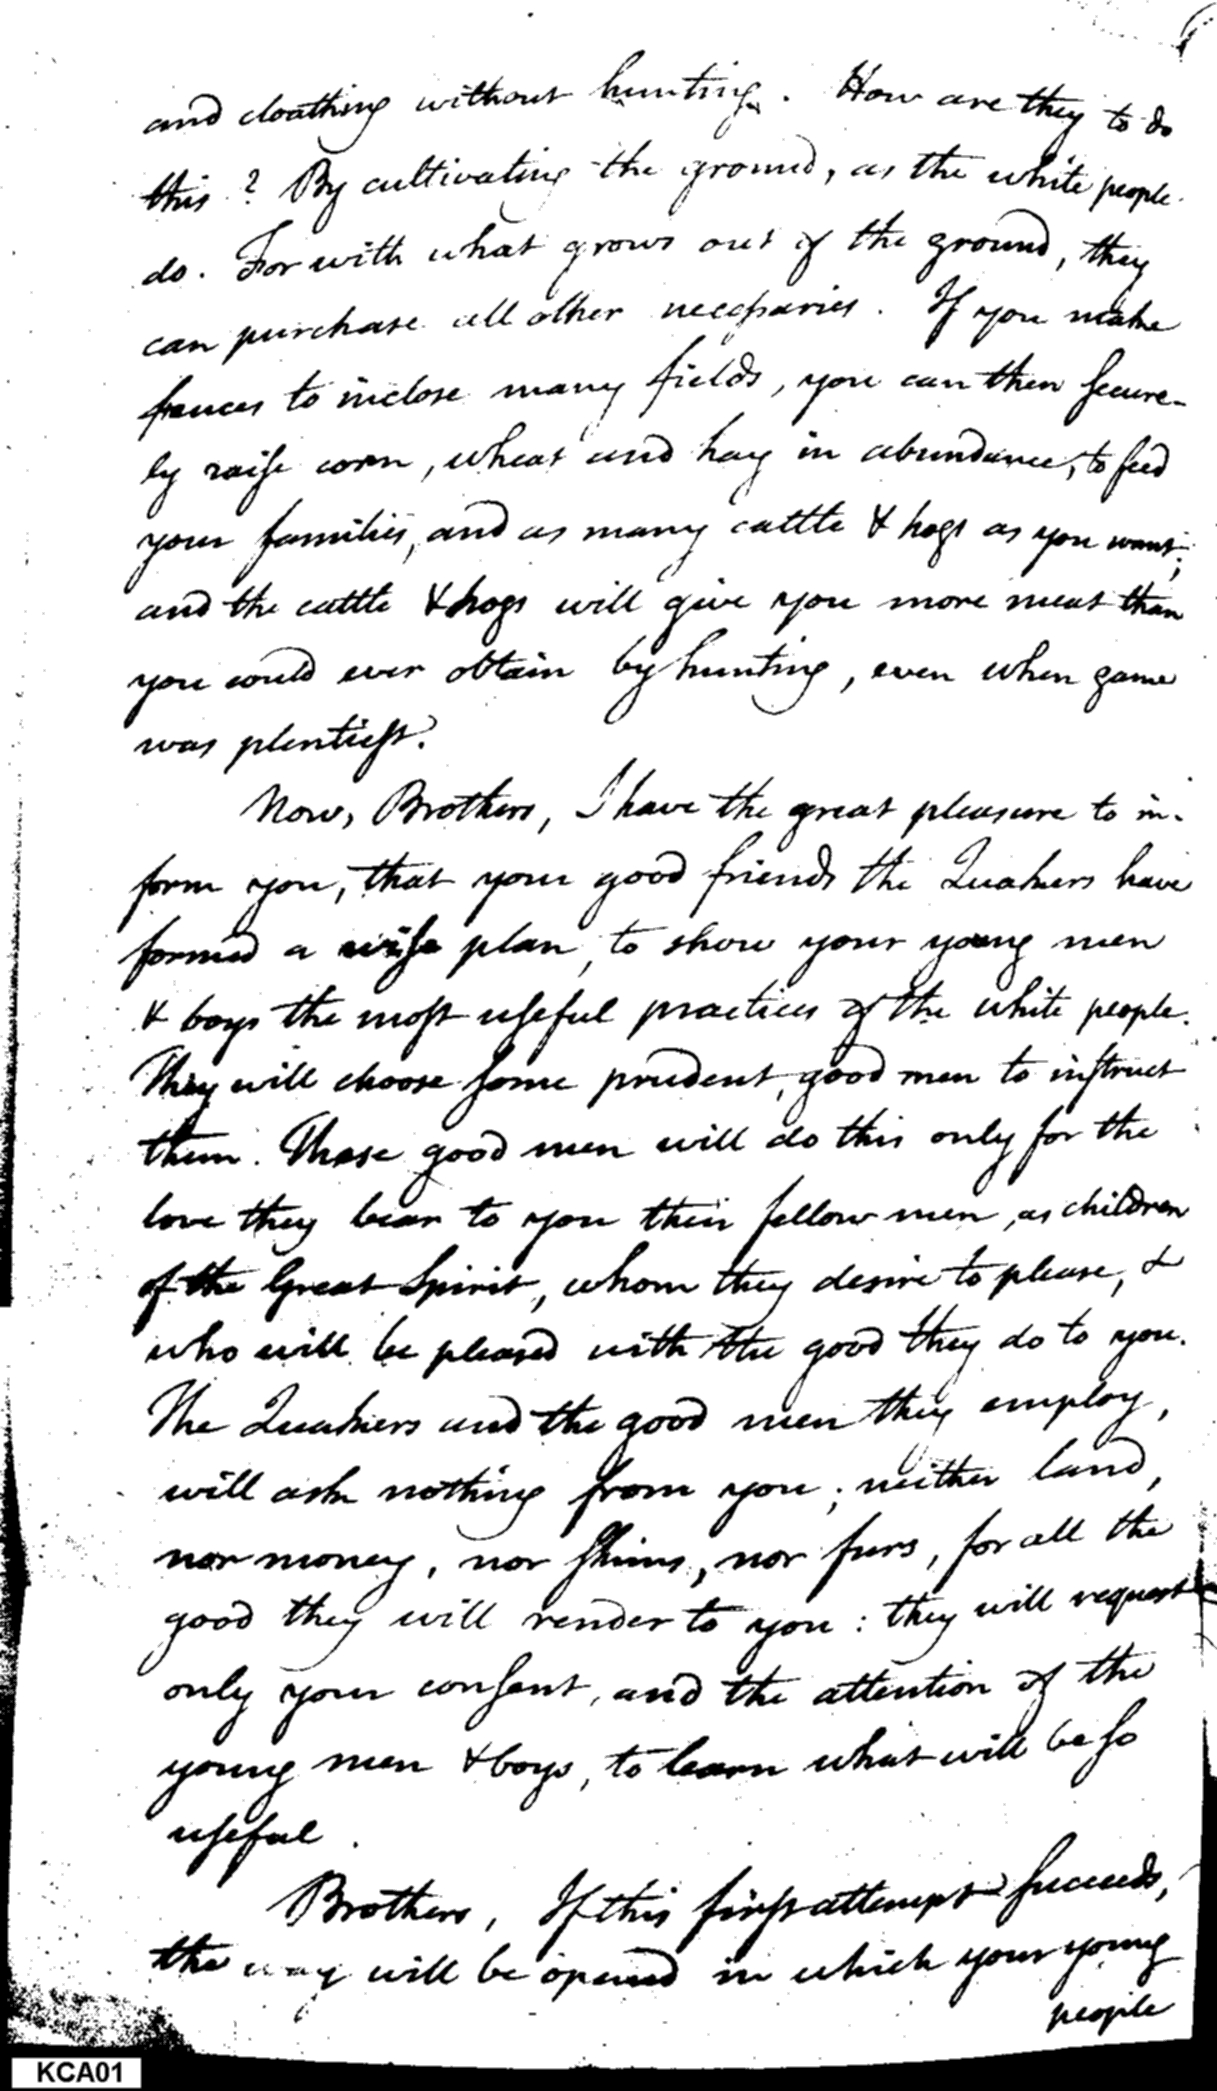 and cloathing without hunting. How are they to do
this? By cultivating the ground, as the white people
do. For with what grows out of the ground, they
can purchase all other necessaries. If you make
fences to inclose many fields, you can then secure-
ly raise corn, wheat and hay in abundance, to feed
your families, and as many cattle & hogs as you want;
and the cattle & hogs will give you more meat than
you could ever obtain by hunting, even when game
was plentiest.
Now, Brothers, I have the great pleasure to in-
form you, that your good friends the Quakers have
formed a wise plan, to show your young men
& boys the most useful practices of the white people.
They will choose some prudent, good men to instruct
them. These good men will do this only for the
love they bear to you their fellow men, as children
of the Great Spirit, whom they desire to please, &
who will be pleased with the good they do to you.
The Quakers and the good men they employ,
will ask nothing from you; neither land,
nor money, nor skins, nor furs, for all the
good they will render to you: they will request
only your consent, and the attention of the
young men & boys, to learn what will be so
useful.
Brothers, If this first attempt succeeds,
the way will be opened in which your young
people
KCA01